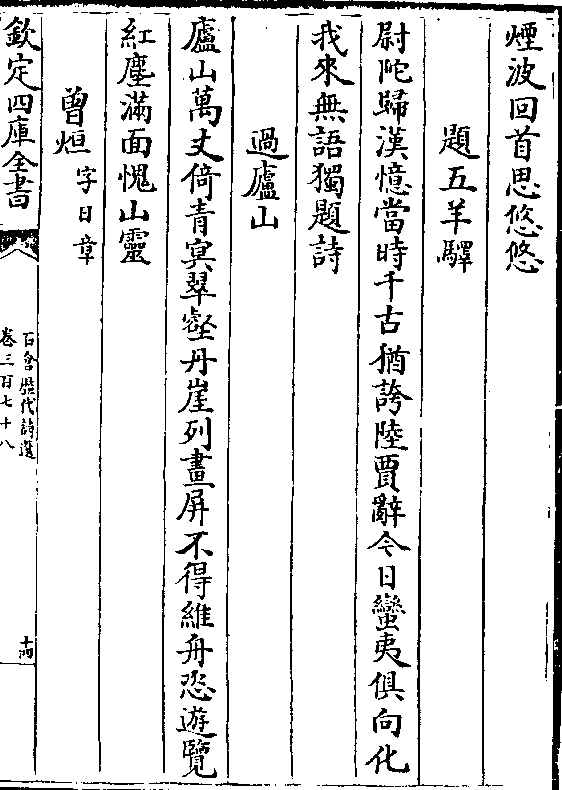 煙波回首思悠悠
題五羊驛
尉陀歸漢憶當時千古猶誇陸賈辭今日蠻夷俱向化
我來無語獨題詩
過廬山
廬山萬丈倚青冥翠壑丹崖列畫屏不得維舟恣遊覽
紅塵滿面愧山靈
曾烜字日章
欽定四庫全書
石倉歷代詩選
卷三百七十八
十四